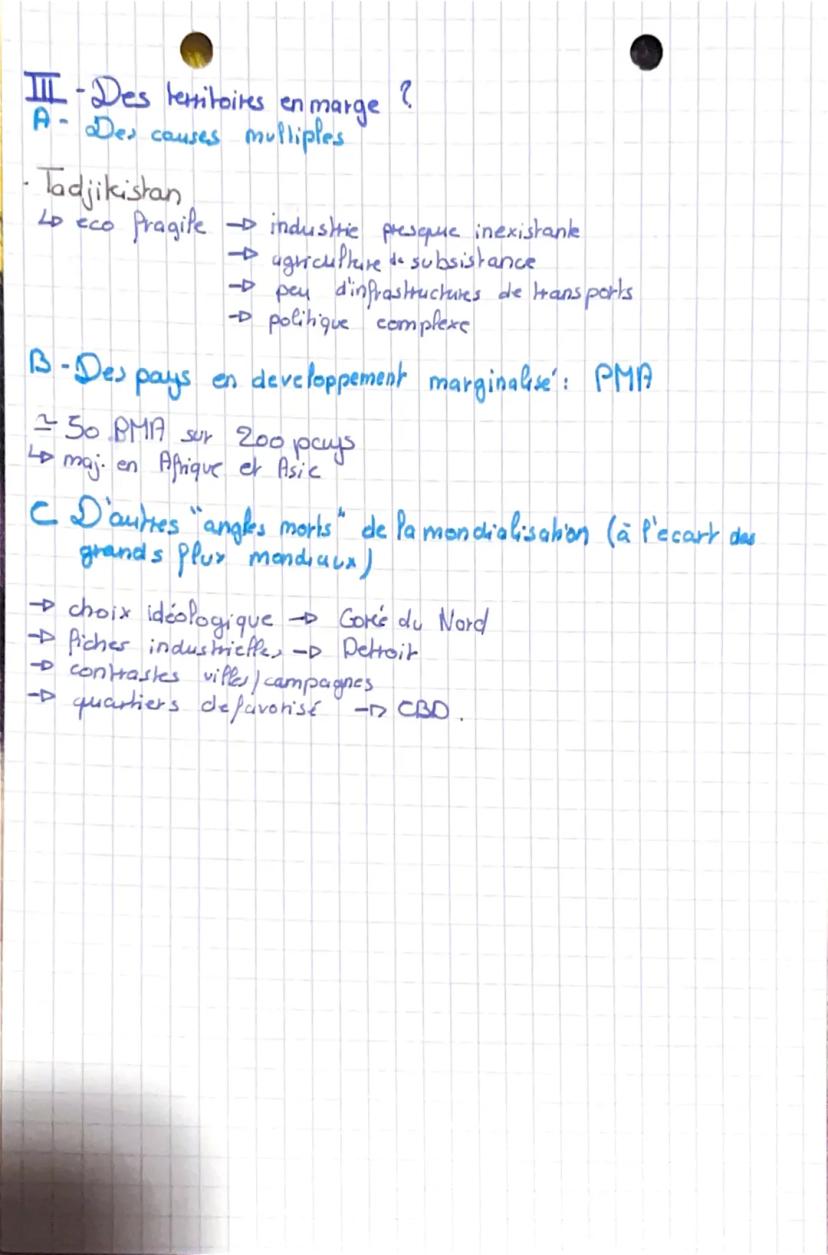 III - Des territoires en marge ?
A - Des causes multiples
· Tadjikistan
↳ eco fragile → industrie presque inexistante
→ agriculture de subsistance
→ peu d'infrastructures de transports
→ politique complexe
B - Des pays en developpement marginalisé : PMA
≃ 50 PMA sur 200 pays
↳ maj. en Afrique et Asie
C D'autres "angles morts" de la mondialisation (à l'ecart des
grands flux mondiaux)
→ choix idéologique → Corée du Nord
→ fiches industrielles → Detroit
→ contrastes villes/campagnes
→ quartiers defavorisé → CBD.